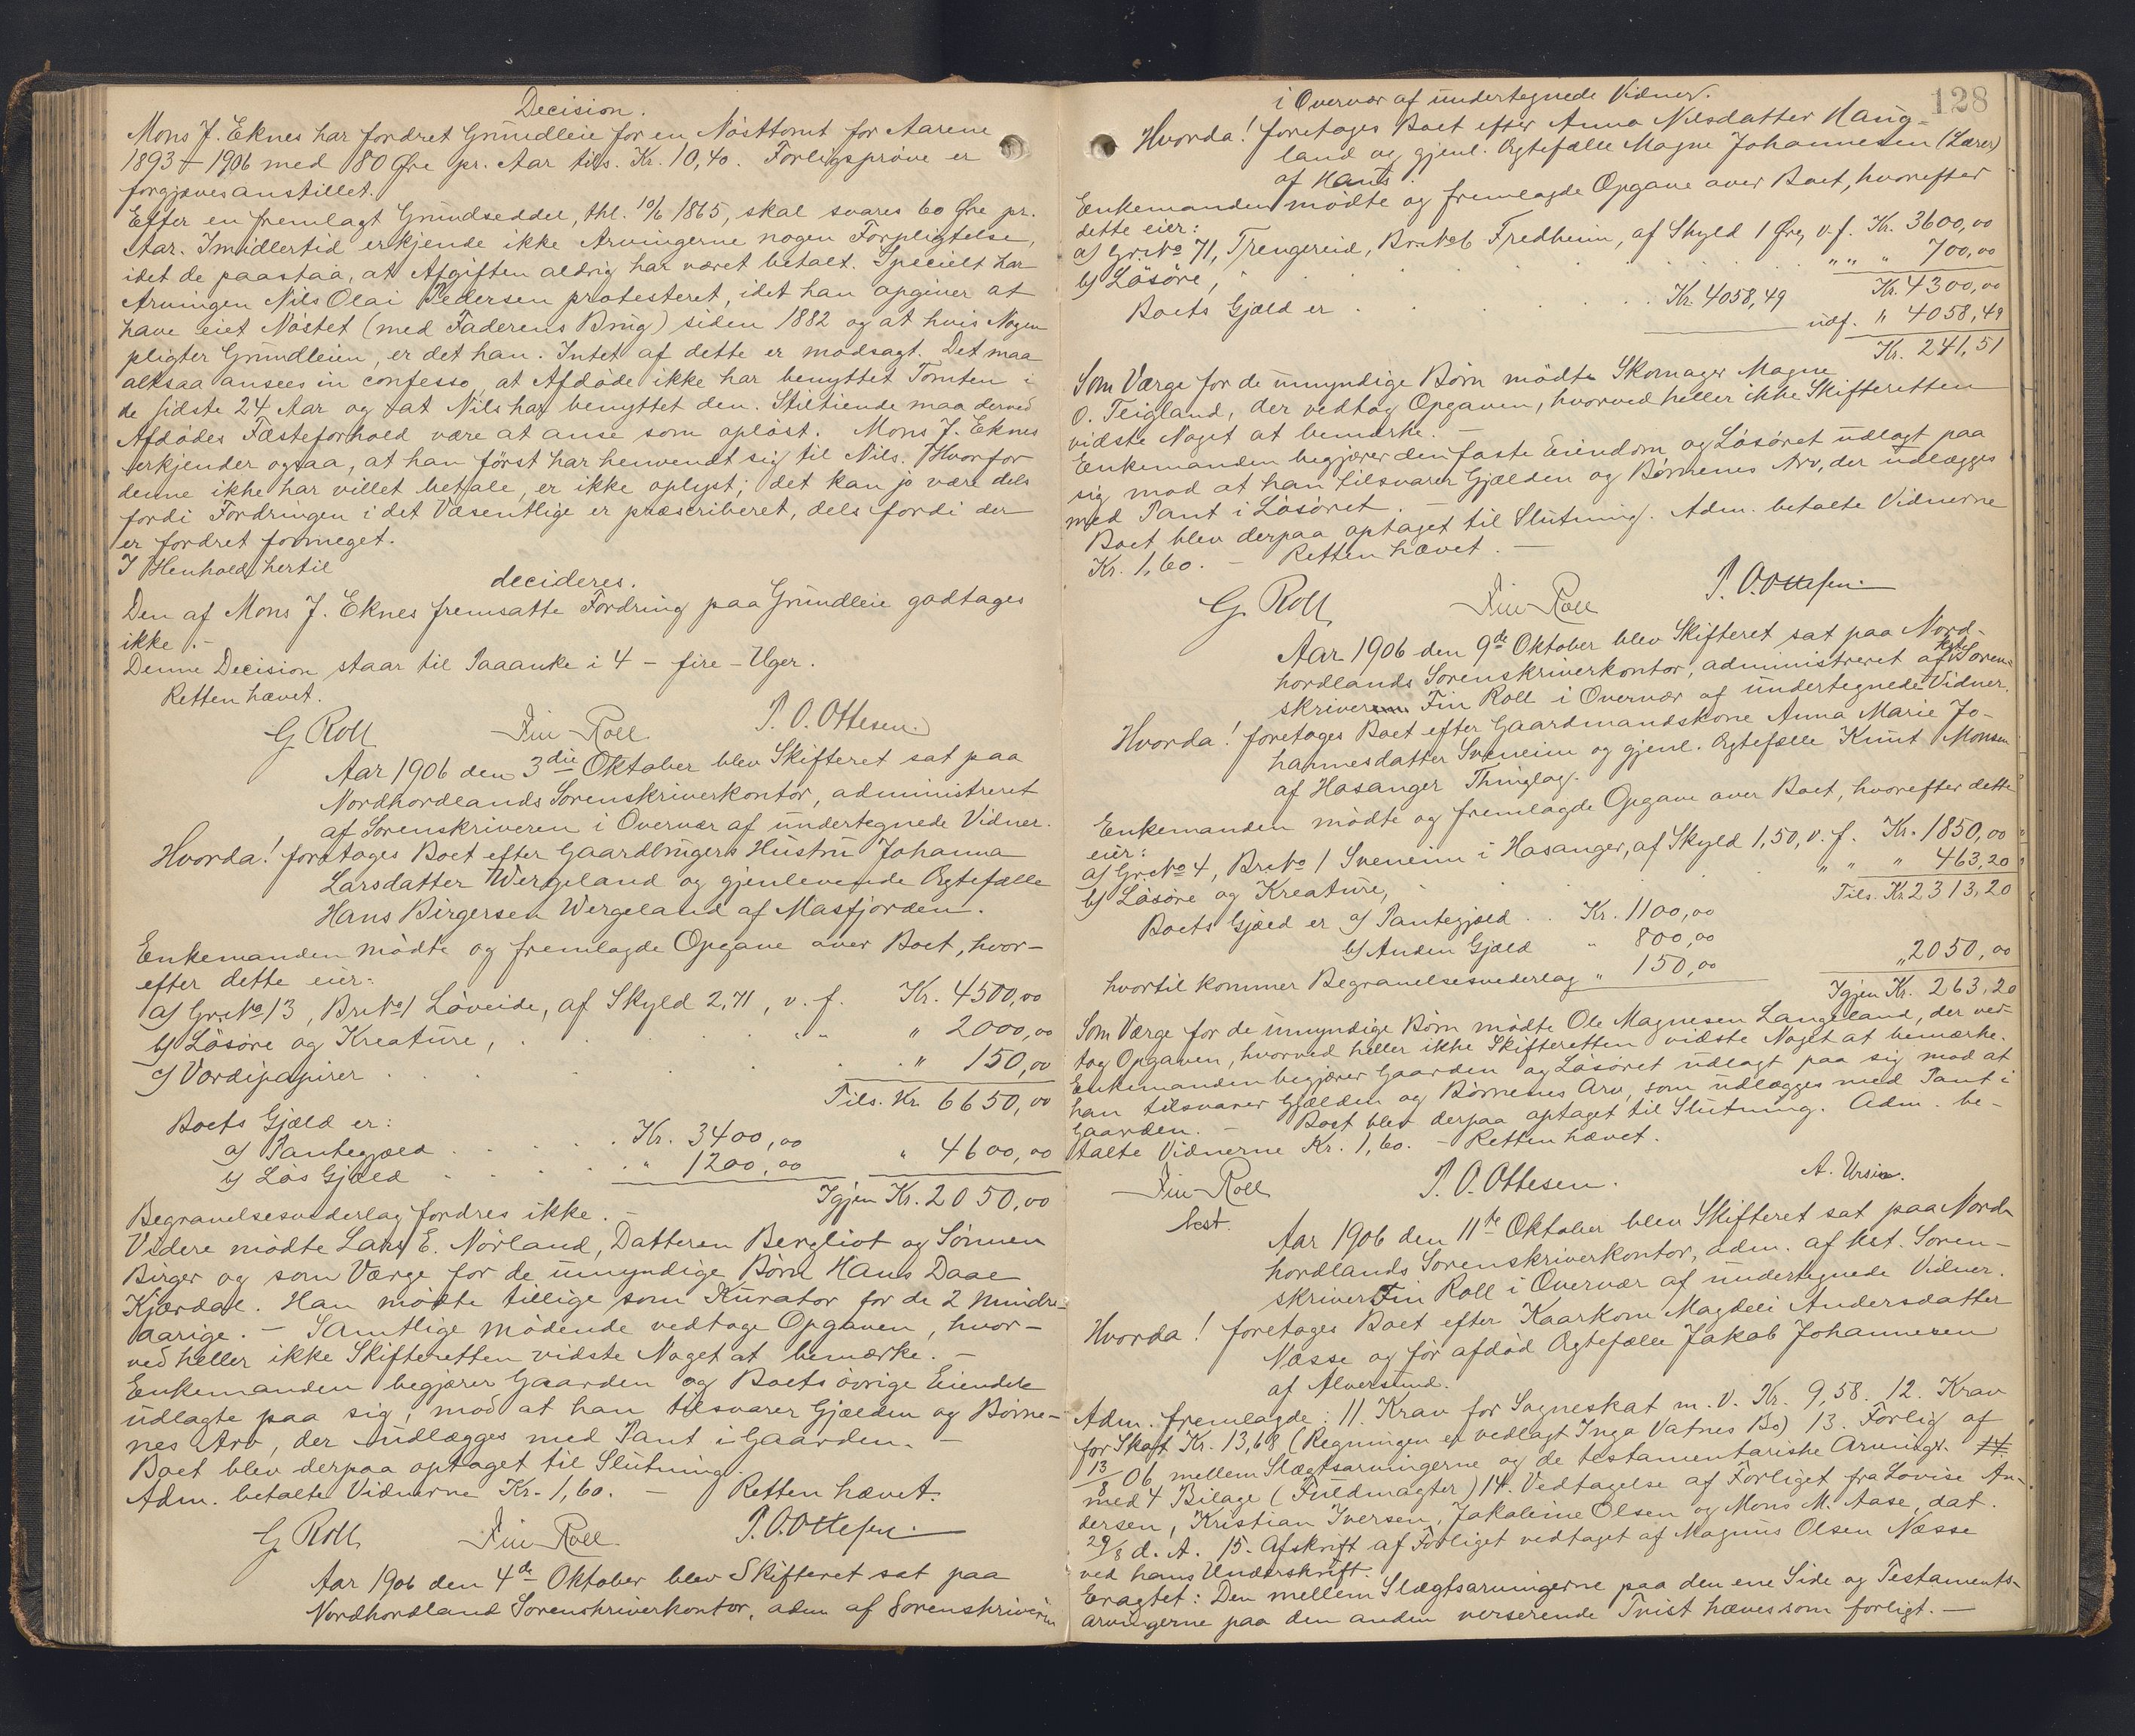 Decision.
Mons J. Eknes har fordret Grundleie for en Nösttomt for Aarene
1893 – 1906 med 80 Øre pr. Aar tils. Kr. 10,40. Forligsprøve er
forgjæves anstillet.
Efter en fremlagt Grundseddel, thl. 10/6 1865, skal svares 60 Øre pr.
Aar. Imidlertid erkjende ikke Arvingerne nogen Forpligtelse,
idet de paastaa, at Afgiften aldrig har været betalt. Specielt har
Arvingen Nils Olai Pedersen protesteret, idet han opgiver at
have eiet Nöstet (med Faderens Brug) siden 1882 og at hvis Nogen
pligter Grundleien, er det han. Intet af dette er modsagt. Det maa
altsaa ansees in confesso, at Afdöde ikke har benyttet Tomten i
de sidste 24 Aar og at Nils har benyttet den. Stiltiende maa derved
Afdödes Fæsteforhold være at anse som oplöst. Mons J. Eknes
erkjender ogsaa, at han först har henvendt sig til Nils. Hvorfor
denne ikke har villet betale, er ikke oplyst; det kan jo være dels
fordi Fordringen i det Væsentlige er præscriberet, dels fordi der
er fordret formeget.
I Henhold hertil
decideres.
Den af Mons J. Eknes fremsatte Fordring paa Grundleie godtages
ikke. –
Denne Decision staar til Paaanke i 4 – fire – Uger.
Retten hævet.
G. Roll Fin Roll P. O. Ottesen.
Aar 1906 den 3die Oktober blev Skifteret sat paa
Nordhordlands Sorenskriverkontor, administreret
af Sorenskriveren i Overvær af undertegnede Vidner.
Hvorda! foretages Boet efter Gaardbrugers Hustru Johanna
Larsdatter Wergeland og gjenlevende Ægtefælle
Hans Birgersen Wergeland af Masfjorden.
Enkemanden mödte og fremlagde Opgave over Boet, hvor-
efter dette eier:
a) Gr.No 13, Br.No 1 Löveide, af Skyld 2,71, v. f. Kr. 4500,00
b) Lösöre og Kreature, . . . . . " " " 2000,00
c) Værdipapirer . . . . . . " 150,00
Tils. Kr. 6650,00
Boets Gjæld er:
a) Pantegjæld . . . . Kr. 3400,00
b) Lös Gjæld . . . . " 1200,00 " 4600,00
Igjen Kr. 2050,00
Begravelsesvederlag fordres ikke. –
Videre mödte Lars E. Nörland, Datteren Bergliot og Sönnen
Birger og som Værge for de umyndige Börn Hans Daae
Kjærdal. Han mödte tillige som Kurator for de 2 Mindre-
aarige. – Samtlige Mödende vedtoge Opgaven, hvor-
ved heller ikke Skifteretten vidste Noget at bemærke. –
Enkemanden begjærer Gaarden og Boets övrige Eiendele
udlagte paa sig, mod at han tilsvarer Gjælden og Börne-
nes Arv, der udlægges med Pant i Gaarden. –
Boet blev derpaa optaget til Slutning.
Adm. betalte Vidnerne Kr. 1,60. – Retten hævet.
G. Roll Fin Roll P. O. Ottesen.
Aar 1906 den 4de Oktober blev Skifteret sat paa
Nordhordland Sorenskriverkontor, adm af Sorenskriveren
128
i Overvær af undertegnede Vidner.
Hvorda! foretages Boet efter Anna Nilsdatter Haug-
land og gjenl. Ægtefælle Magne Johannesen (Lærer)
af Haus.
Enkemanden mödte og fremlagde Opgave over Boet, hvorefter
dette eier:
a) Gr.No 71, Trengereid, Br.No 6 Fredheim, af Skyld 1 Øre, v. f. Kr. 3600,00
b) Lösöre, . . . . . . " " " 700,00
Kr. 4300,00
Boets Gjæld er . . . . . Kr. 4058,49 udf. " 4058,49
Kr. 241,51
Som Værge for de umyndige Börn mödte Skomager Magne
O. Teigland, der vedtog Opgaven, hvorved heller ikke Skifteretten
vidste Noget at bemærke. –
Enkemanden begjærer den faste Eiendom og Lösöret udlagt paa
sig mod at han tilsvarer Gjælden og Börnenes Arv, der udlægges
med Pant i Lösöret. –
Boet blev derpaa optaget til Slutning. Adm. betalte Vidnerne
Kr. 1,60. – Retten hævet. –
G. Roll Fin Roll P. O. Ottesen.
Aar 1906 den 9de Oktober blev Skifteret sat paa Nord-
hordlands Sorenskriverkontor, administreret af kst. Soren-
skriver Fin Roll i Overvær af undertegnede Vidner.
Hvorda! foretages Boet efter Gaardmandskone Anna Marie Jo-
hannesdatter Sveneim og gjenl. Ægtefælle Knut Monsen
af Hosanger Thinglag.
Enkemanden mödte og fremlagde Opgave over Boet, hvorefter dette
eier:
a) Gr.No 4, Br.No 1 Sveneim i Hosanger, af Skyld 1,50, v. f. Kr. 1850,00
b) Lösöre og Kreature, . . . . " " " 463,20
Tils. Kr. 2313,20
Boets Gjæld er a) Pantegjæld . . Kr. 1100,00
b) Anden Gjæld " 800,00
hvortil kommer Begravelsesvederlag " 150,00 " 2050,00
Igjen Kr. 263,20
Som Værge for de umyndige Börn mödte Ole Magnesen Langeland, der ved-
tog Opgaven, hvorved heller ikke Skifteretten vidste Noget at bemærke.
Enkemanden begjærer Gaarden og Lösöret udlagt paa sig mod at
han tilsvarer Gjælden og Börnenes Arv, som udlægges med Pant i
Gaarden. – Boet blev derpaa optaget til Slutning. Adm. be-
talte Vidnerne Kr. 1,60. – Retten hævet.
Fin Roll P. O. Ottesen. A. Ursin.
kst.
Aar 1906 den 11te Oktober blev Skifteret sat paa Nord-
hordlands Sorenskriverkontor, adm. af kst. Soren-
skriver Fin Roll i Overvær af undertegnede Vidner.
Hvorda! foretages Boet efter Kaarkone Magdeli Andersdatter
Næsse og för afdöd Ægtefælle Jakob Johannesen
af Alversund.
Adm. fremlagde: 11. Krav for Sogneskat m. v. Kr. 9,58. 12. Krav
for Skat Kr. 13,68 (Regningen er vedlagt Inga Vatnes Bo) 13. Forlig af
13/8 06 mellem Slægtsarvingerne og de testamentariske Arvinger
med 4 Bilage (Fuldmagter) 14. Vedtagelse af Forliget fra Lovise An-
dersen, Kristian Iversen, Jakobine Olsen og Mons M. Aase, dat.
29/8 d. A. 15. Afskrift af Forliget vedtaget af Magnus Olsen Næsse
ved hans Underskrift.
Eragtet: Den mellem Slægtsarvingerne paa den ene Side og Testaments-
arvingerne paa den anden verserende Tvist hæves som forligt. –